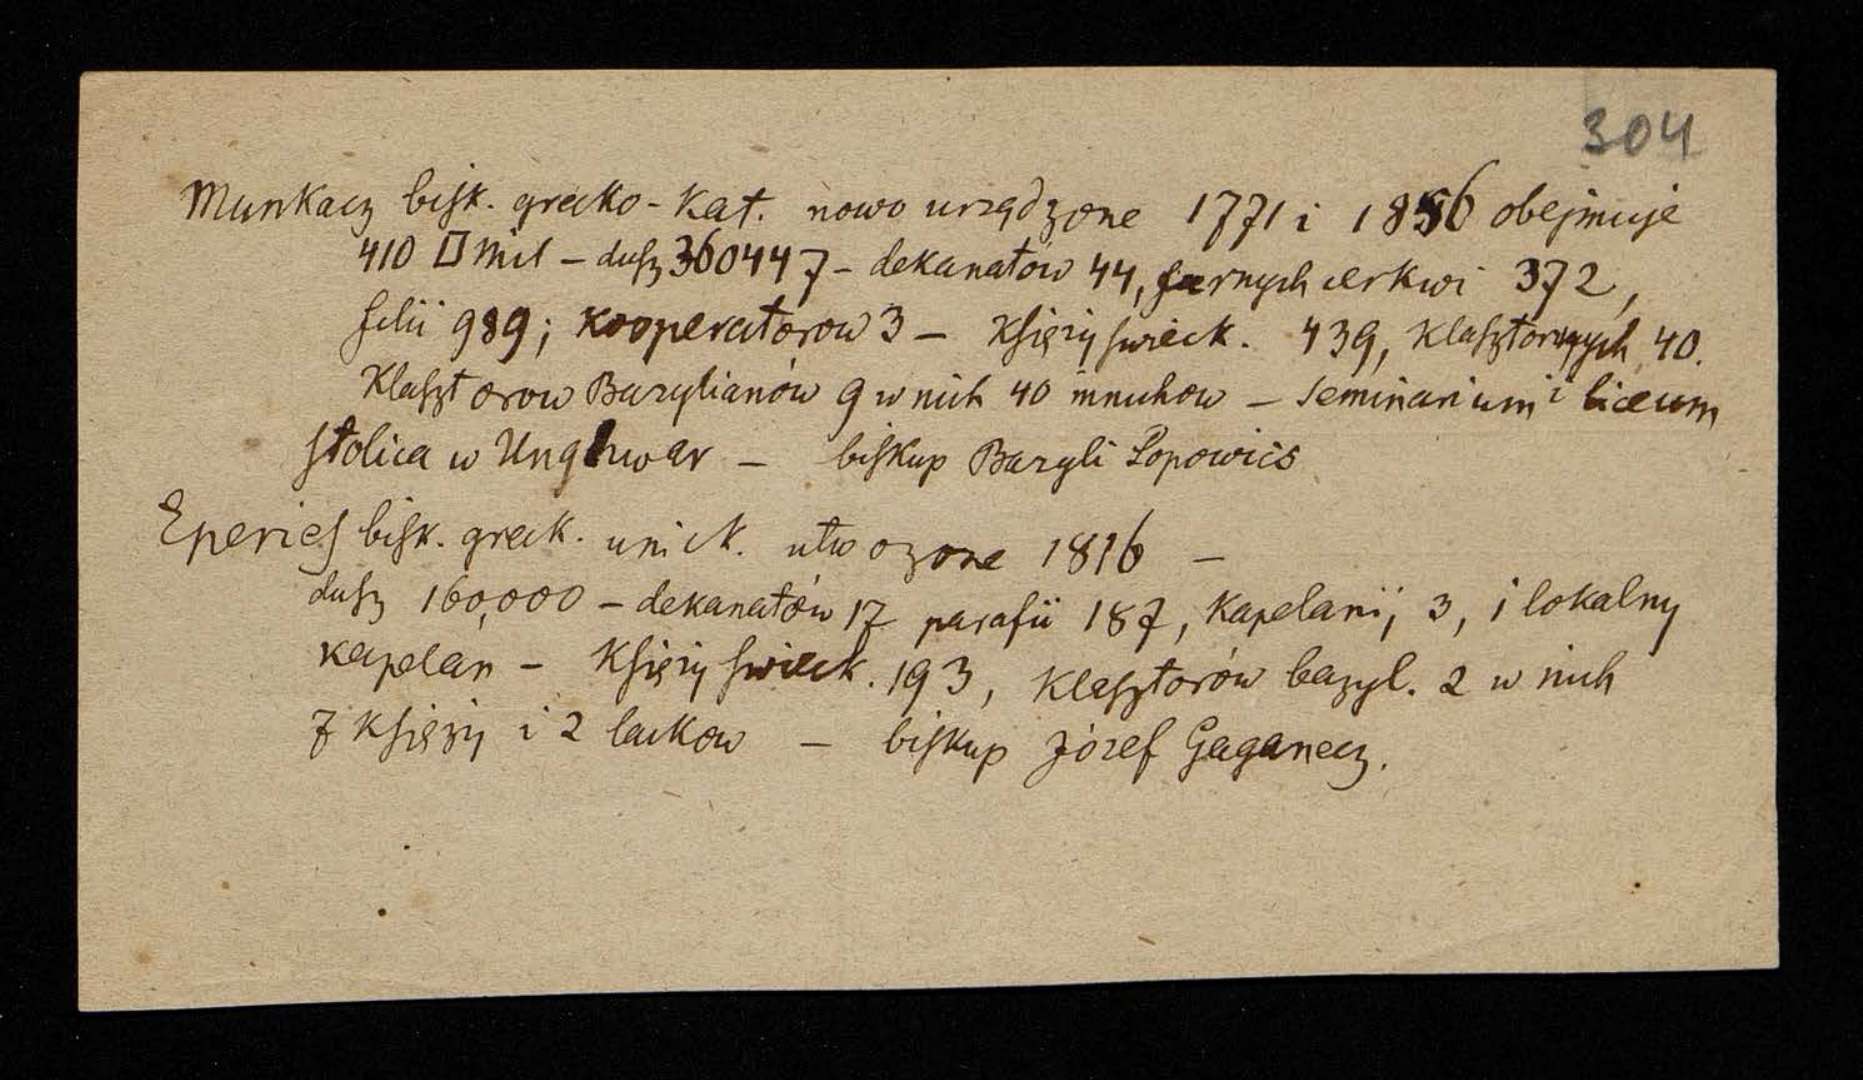 304
Munkacz bisk. grecko-kat. nowo urządzone 1771 i 1856 obejmuje
410 □ Mil – dusz 360447 – dekanatów 44, farnych cerkwi 372,
filii 989; kooperatorow 3 – Księży swieck. 439, klasztornych 40.
Klasztorow Bazylianów 9 w nich 40 mnichow – seminarium i liceum
stolica w Unghwar – biskup Bazyli Popowics
Eperies bisk. greck. unick. utwozone 1816 –
dusz 160,000 – dekanatów 17 parafii 187, Kapelanij 3, i lokalny
kapelan – Księży swieck. 193, klasztorów bazyl. 2 w nich
7 księży i 2 laikow – biskup Józef Gaganecz.